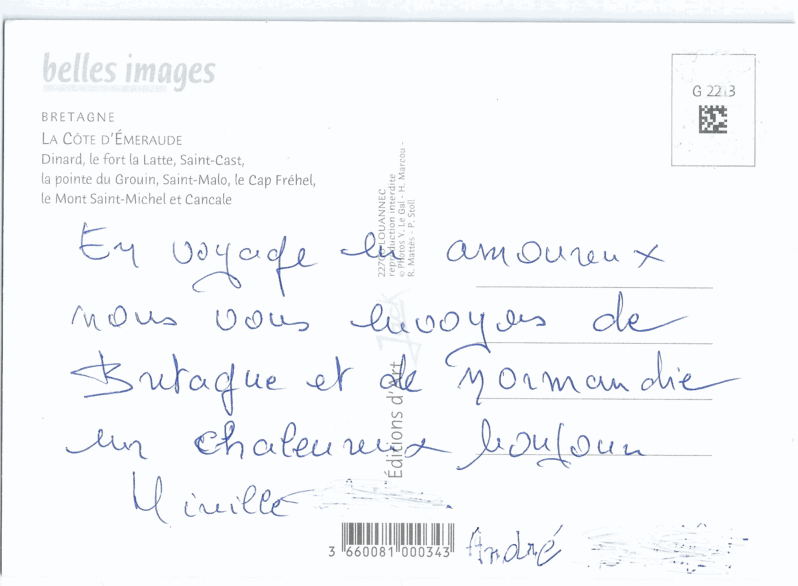 belles images
BRETAGNE
LA CÔTE D'ÉMERAUDE
Dinard, le fort la Latte, Saint-Cast,
la pointe du Grouin, Saint-Malo, le Cap Fréhel,
le Mont Saint-Michel et Cancale
G 2213
En voyage en amoureux
nous vous envoyons de
Bretagne et de Normandie
un chaleureux bonjour
Mireille
André
Éditions d'Art
LOUANNEC
reproduction interdite
© Photos Y. Le Gal - H. Marcou -
R. Mattès - P. Stoll
3 660081 000343